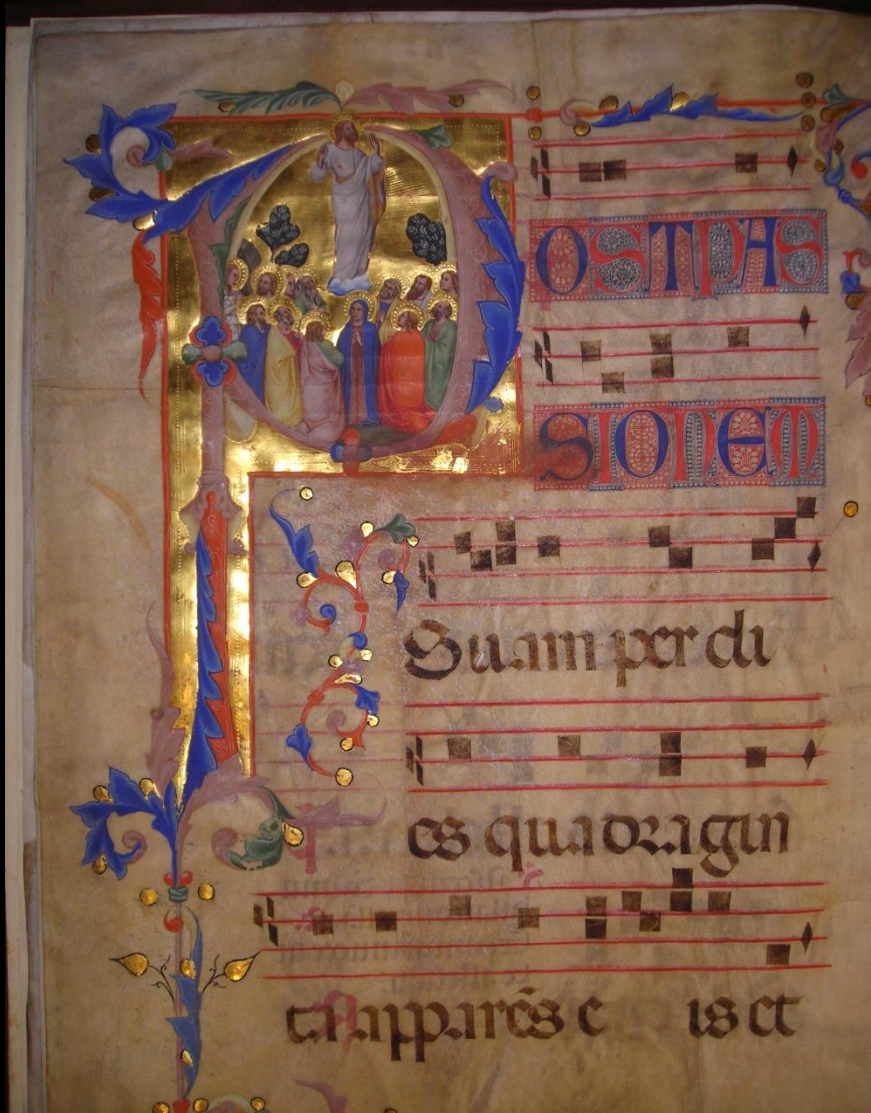 POSTPAS
SIONEM
Suam per di
es quadragin
ta apparēs e is et